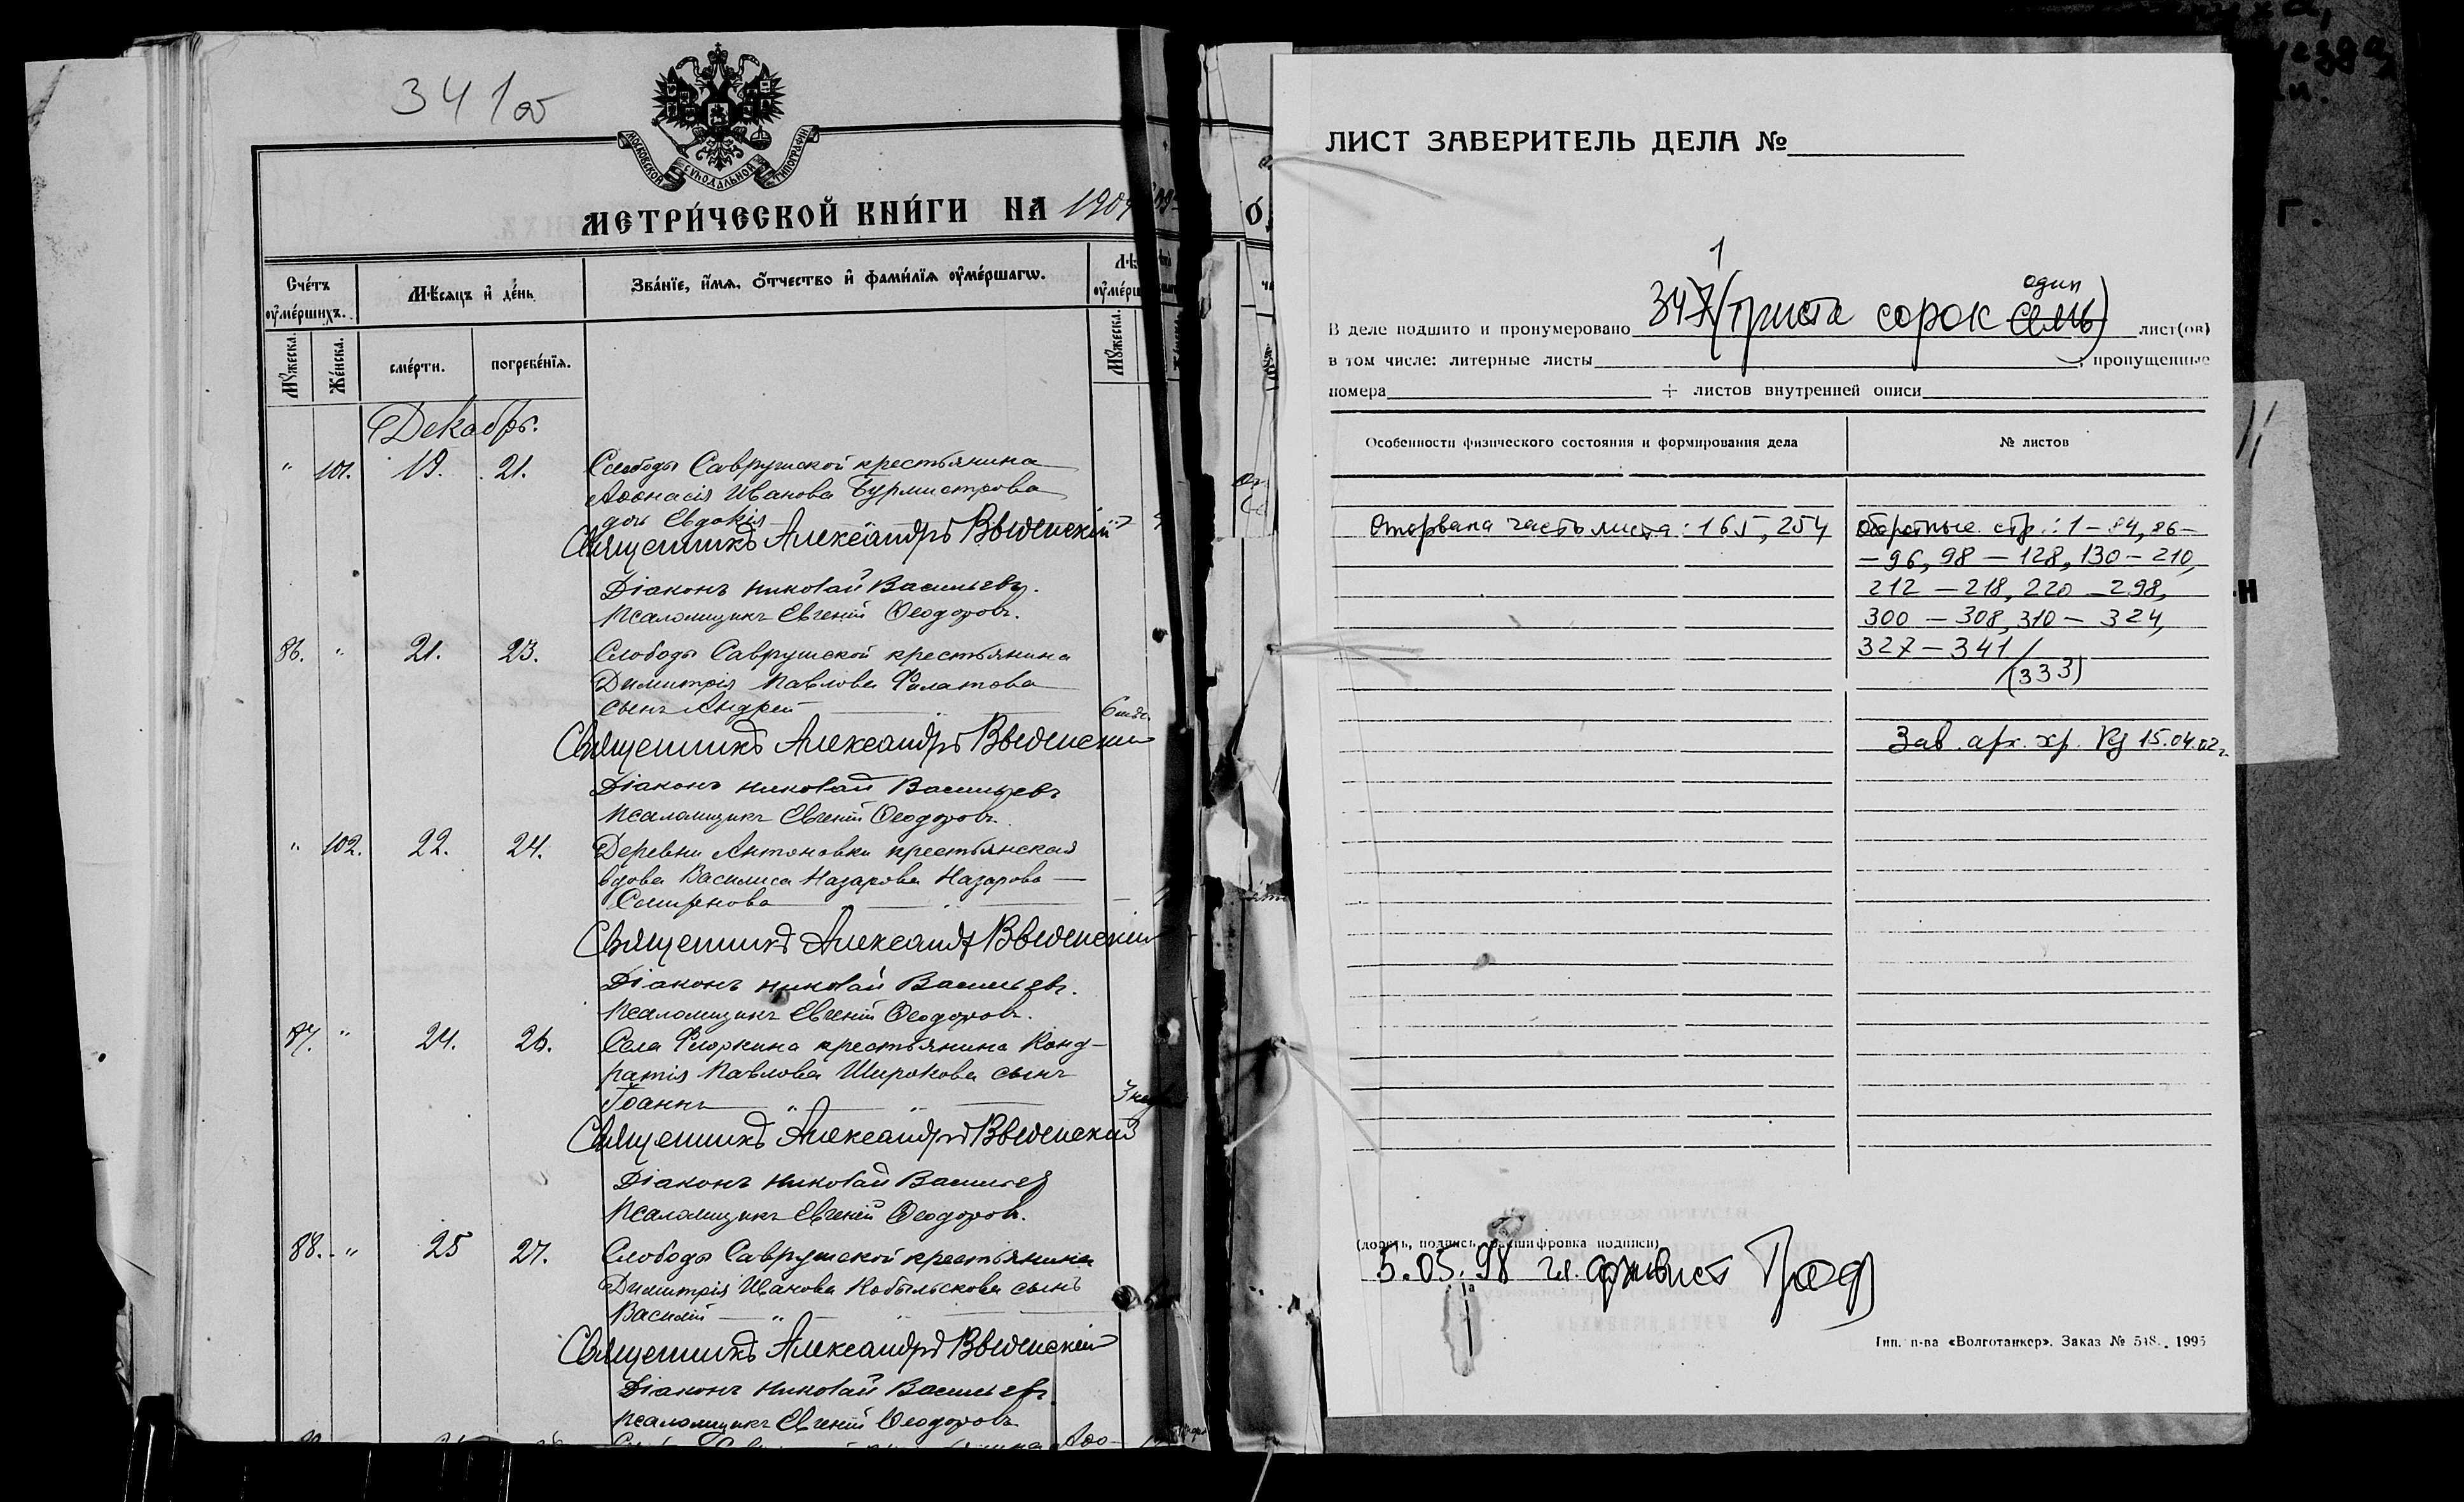 341об
МОСКОВСКОЙ СѴНОДАЛЬНОЙ ТИПОГРАФІИ
МЕТРИ́ЧЕСКОЙ КНИ́ГИ НА 1909
Сче́тъ ᲂу҆ме́ршихъ.
Мѣ́сяцъ и҆ де́нь
Зва́нїе, и҆́мя, ѻ҆́тчество и҆ фами́лїя ᲂу҆ме́ршагѡ.
Мꙋ́жеска.
Же́нска.
сме́рти.
погребе́нїя.
Мꙋ́жеска.
Декабрь.
" 101. 19. 21. Слободы Саврушской крестьянина
Аѳонасія Иванова Бурмистрова
дочь Евдокія
Священникъ Александръ Введенскій
Діаконъ Николай Васильевъ.
Псаломщикъ Евгеній Ѳеодоровъ.
86. " 21. 23. Слободы Саврушской крестьянина
Димитрія Павлова Филатова
сынъ Андрей
Священникъ Александръ Введенскій
Діаконъ Николай Васильевъ
Псаломщикъ Евгеній Ѳеодоровъ.
" 102. 22. 24. Деревни Антоновки крестьянская
вдова Василиса Назарова Назарова
Священникъ Александръ Введенскій
Діаконъ Николай Васильевъ.
Псаломщикъ Евгеній Ѳеодоровъ.
87. " 24. 26. Села Флоркина крестьянина Конд-
ратія Павлова Широкова сынъ
Іоаннъ
Священникъ Александръ Введенскій
Діаконъ Николай Васильевъ
Псаломщикъ Евгеній Ѳеодоровъ.
88. " 25 27. Слободы Саврушской крестьянина
Димитрія Иванова Кобыльскова сынъ
Василій
Священникъ Александръ Введенскій
Діаконъ Николай Васильевъ.
Псаломщикъ Евгеній Ѳеодоровъ
ЛИСТ ЗАВЕРИТЕЛЬ ДЕЛА №
1
один
В деле подшито и пронумеровано 347 (триста сорок семь) лист(ов)
в том числе: литерные листы ; пропущенные
номера + листов внутренней описи
Особенности физического состояния и формирования дела
№ листов
Оторвана часть листа: 165, 254
оборотные стр.: 1–84, 86–
–96, 98–128, 130–210,
212–218, 220–298,
300–308, 310–324,
327–341
(333)
Зав. арх. хр. 15.04.02г.
(должн, подпись, расшифровка подписи)
5.05.98 гл. архивист
Тип. п-ва «Волготанкер». Заказ № 548. 1995